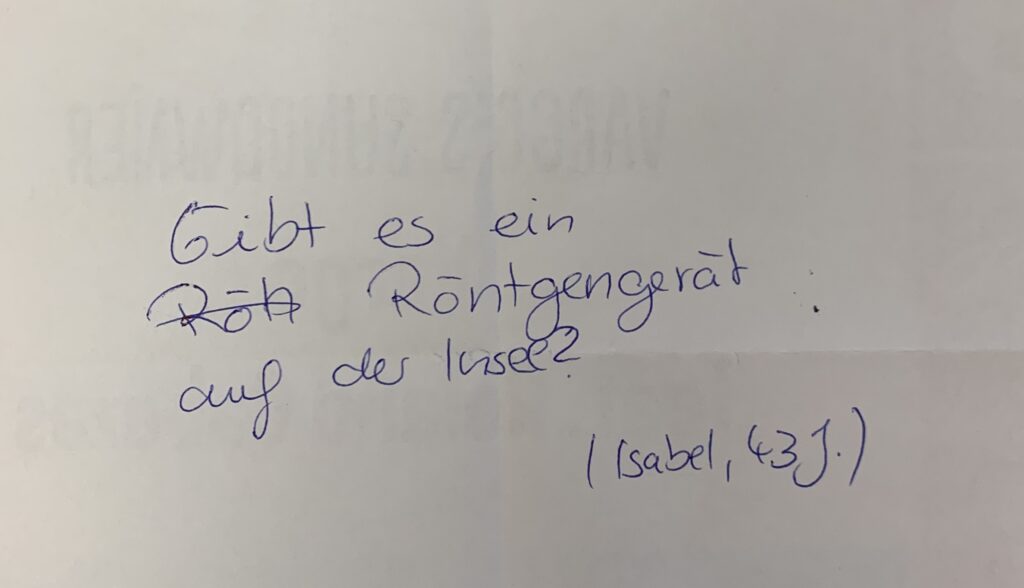 Gibt es ein
Röh Röntgengerät
auf der Insel?
(Isabel, 43 J.)